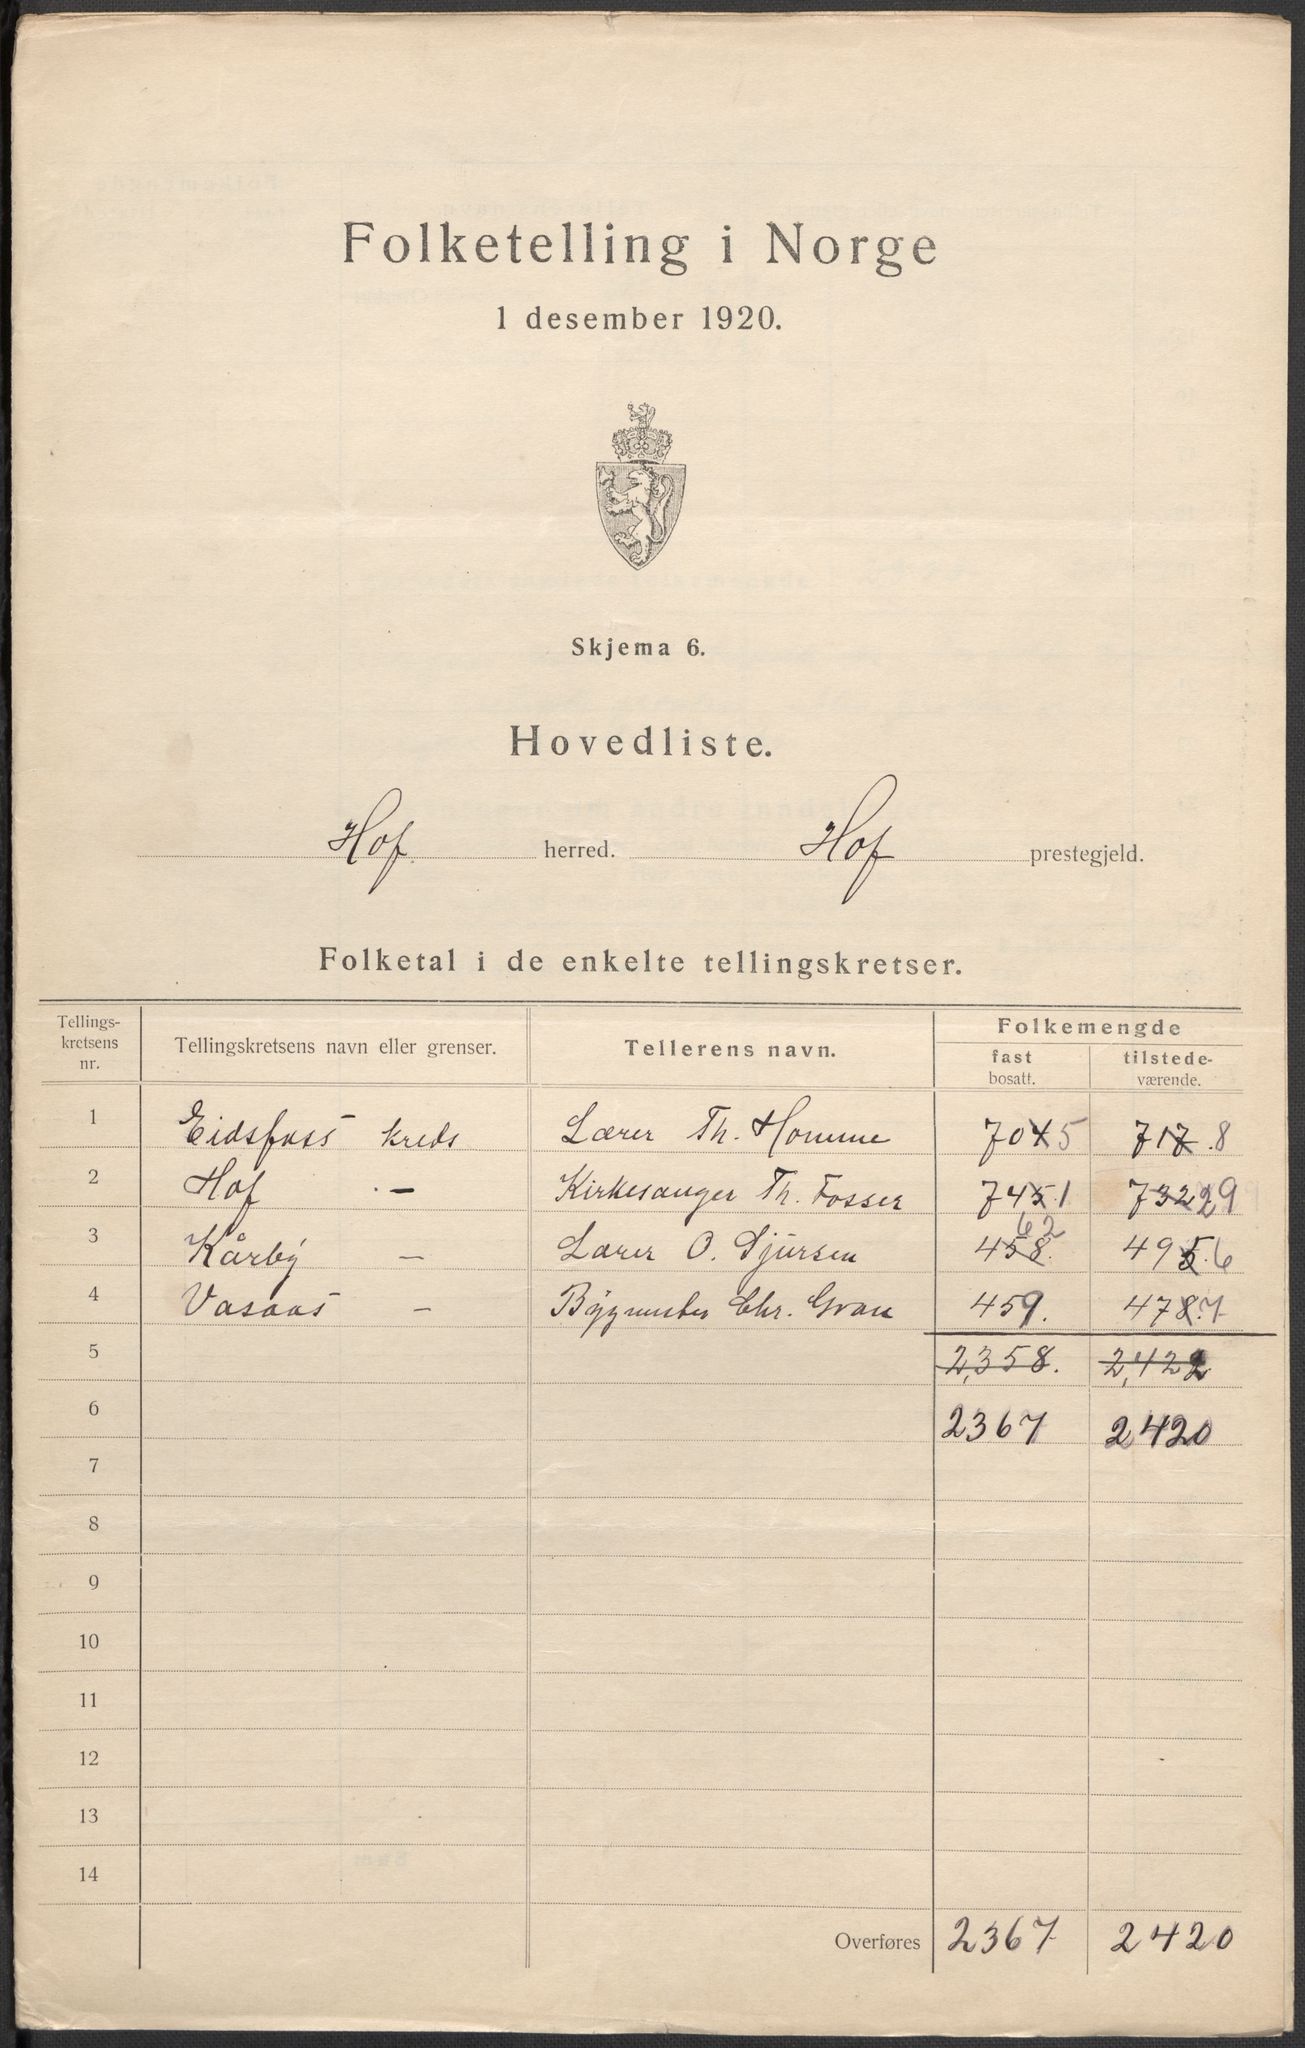 Folketelling i Norge
1 desember 1920.
Skjema 6.
Hovedliste.
Hof herred. Hof prestegjeld.
Folketal i de enkelte tellingskretser.
Tellings-
kretsens
nr.
Tellingskretsens navn eller grenser.
Tellerens navn.
Folkemengde
fast
bosatt.
tilstede-
værende.
1 Eidsfoss kreds Lærer Th. Homme 7045 717.8
2 Hof - Kirkesanger Th. Fosser 745.1 73229
62
3 Kårby - Lærer O. Sjursen 458. 495.6
4 Vasaas - Bygmester Chr. Gran 459. 478.7
5 2,358. 2,422
6 2367 2420
7
8
9
10
11
12
13
14
Overføres 2367 2420